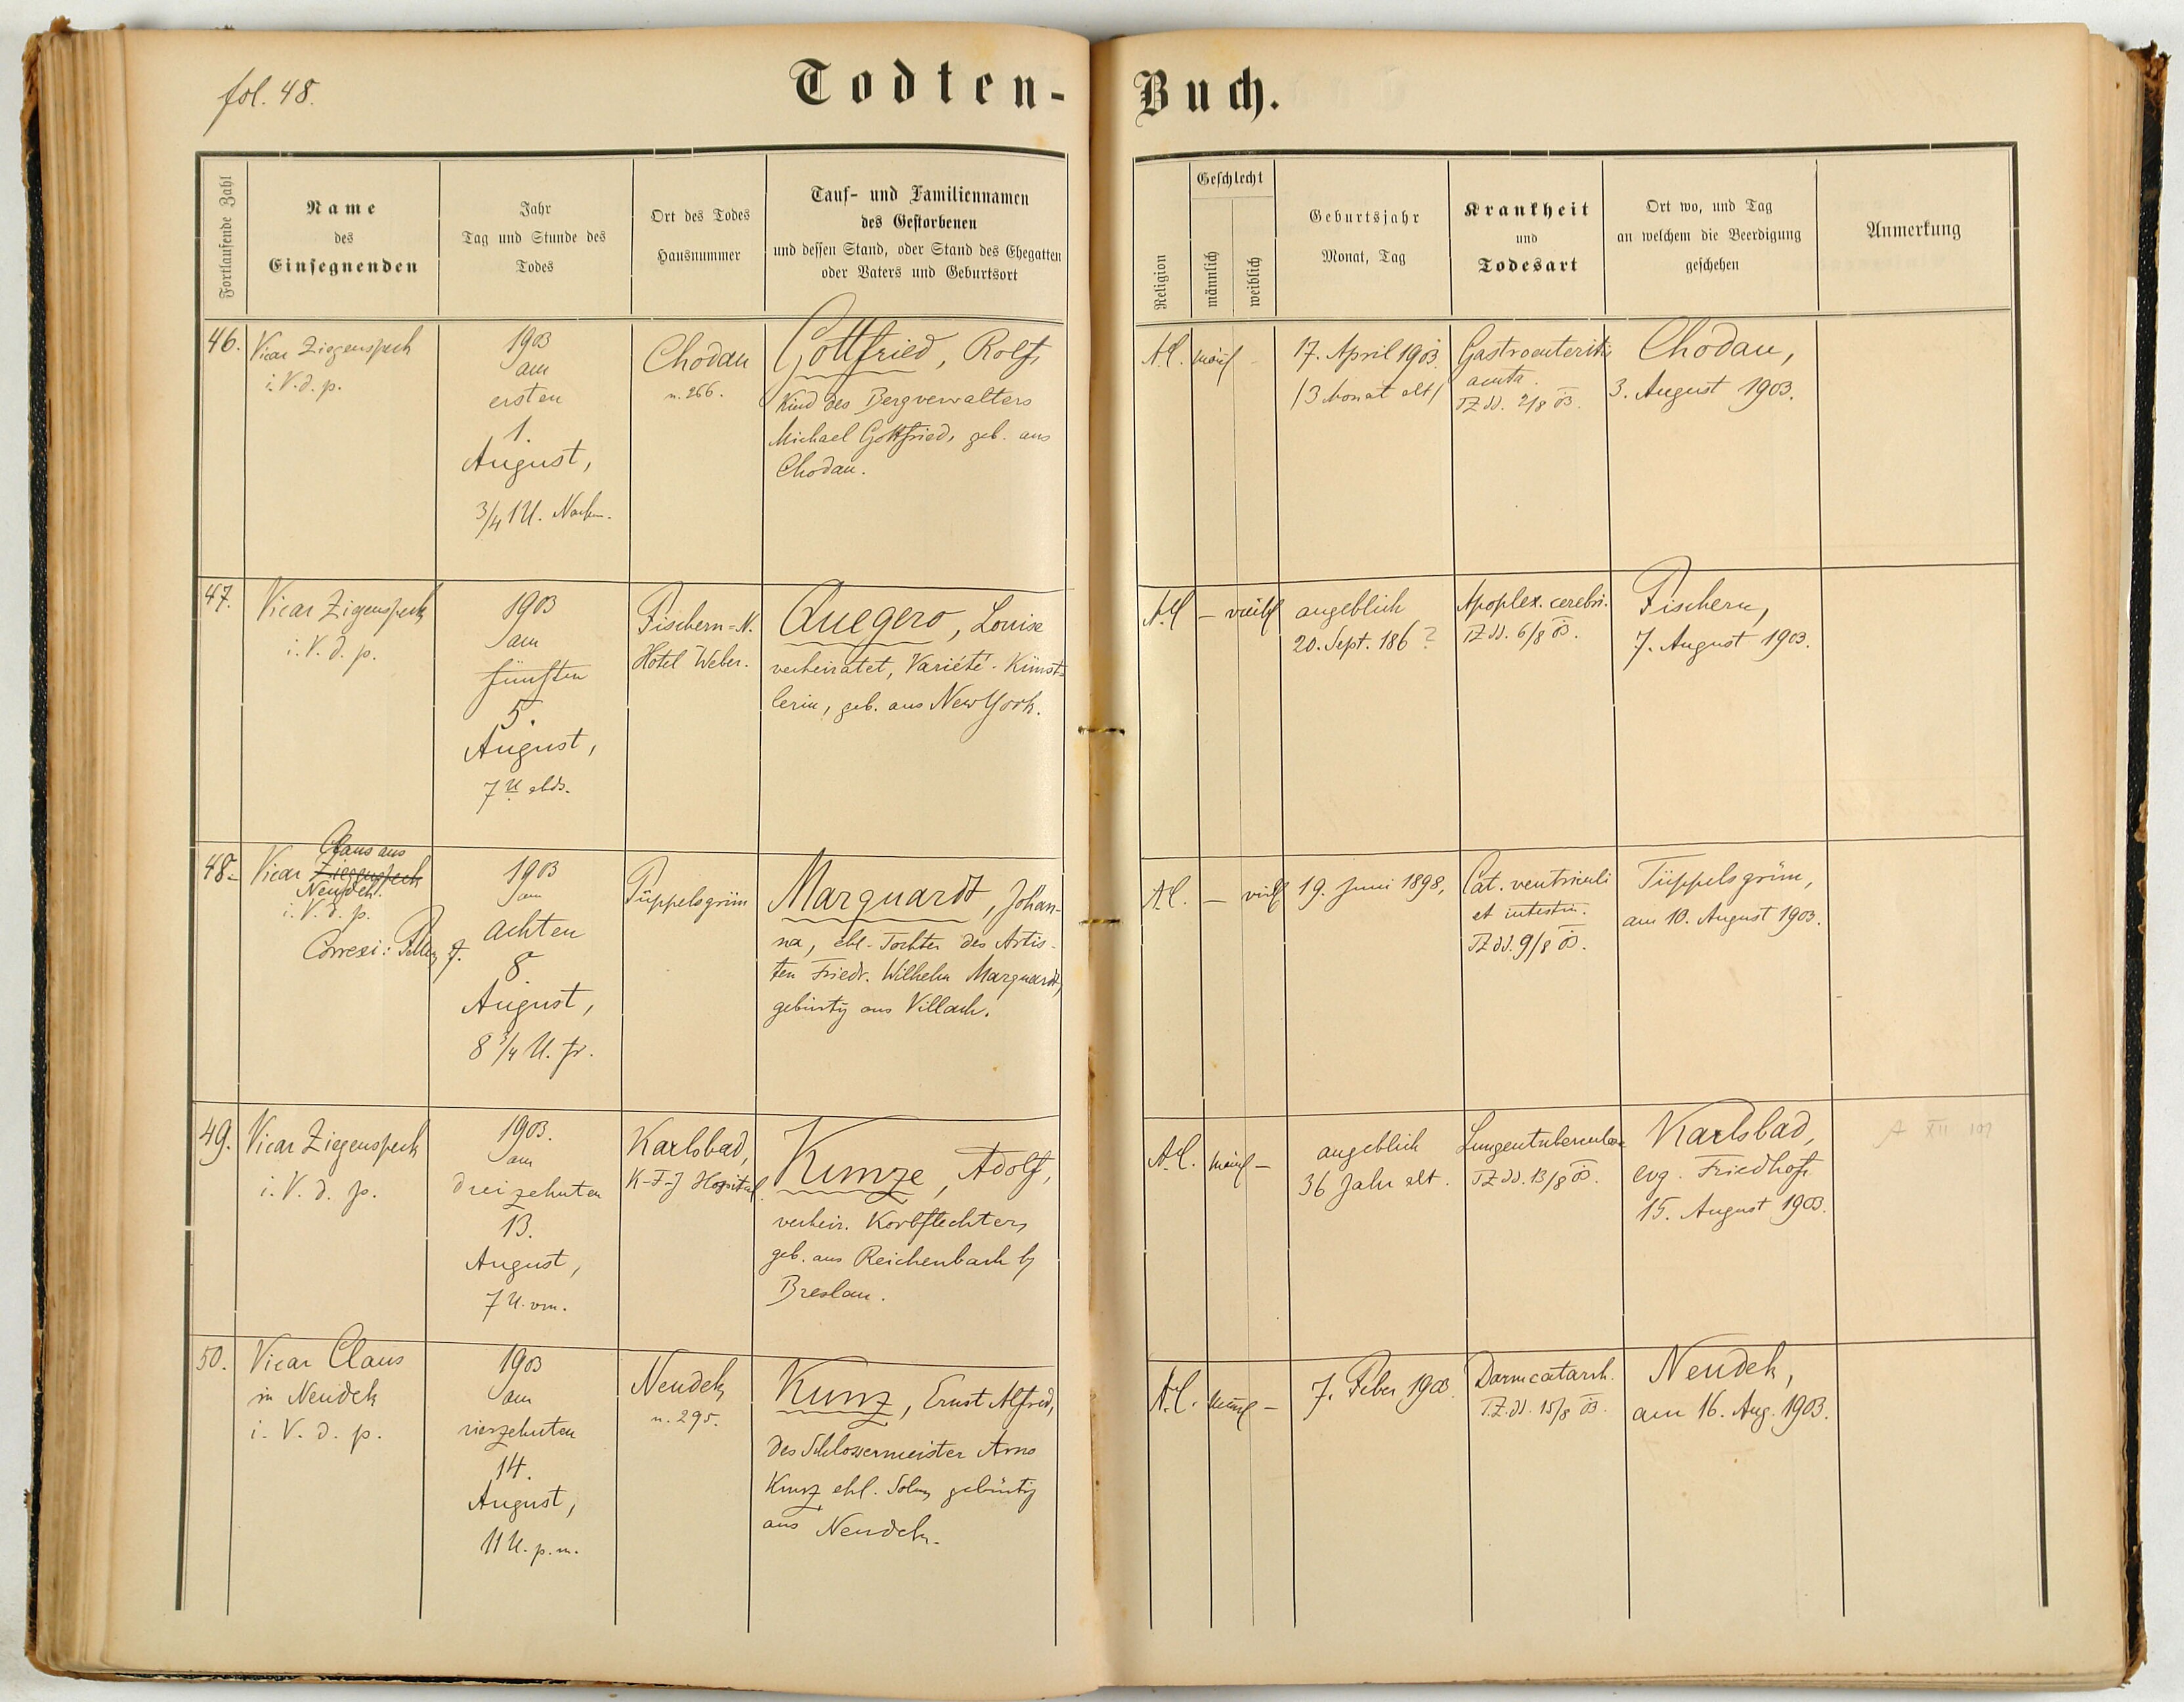 fol. 48.
Todten-
Buch.
Fortlaufende Zahl
Name
des
Einsegnenden
Jahr
Tag und Stunde des
Todes
Ort des Todes
Hausnummer
Tauf- und Familiennamen
des Gestorbenen
und dessen Stand, oder Stand des Ehegatten
oder Vaters und Geburtsort
Religion
Geschlecht
männlich
weiblich
Geburtsjahr
Monat, Tag
Krankheit
und
Todesart
Ort wo, und Tag
an welchem die Beerdigung
geschehen
Anmerkung
46.
Vicar Ziegenspeck
i. V. d. p.
1903
am
ersten
1.
August,
3/4 1 U. Nachm.
Chodau
n. 266.
Gottfried, Rolf,
Kind des Bergverwalters
Michael Gottfried, geb. aus
Chodau.
A.C.
männl
-
17. April 1903.
/3 Monat alt/
Gastroenteritis
acuta.
TZ dd. 2/8 03.
Chodau,
3. August 1903.
47.
Vicar Zigenspeck
i. V. d. p.
1903
am
fünften
5.
August,
7 U abds.
Fischern-N.
Hotel Weber.
Quegero, Louise
verheiratet, Variété-Künst-
lerin, geb. aus New York.
A.C
-
weibl
angeblich
20. Sept. 186?
Apoplex. cerebri.
TZ dd. 6/8 03.
Fischern,
7. August 1903.
48.
Claus aus
Vicar Ziegenspeck
Neudek
i. V. d. p.
Correxi:
1903
am
achten
8.
August,
8 3/4 U. fr.
Tüppelsgrün
Marquardt, Johan-
na, ehl. Tochter des Artis-
ten Friedr. Wilhelm Marquardt,
gebürtig aus Villach.
A.C.
-
weibl
19. Juni 1898,
Cat. ventriculi
et intestin.
TZ dd. 9/8 03.
Tüppelsgrün,
am 10. August 1903.
49.
Vicar Ziegenspeck
i. V. d. p.
1903.
am
dreizehnten
13.
August,
7 U. vm.
Karlsbad,
K-F-J Hospital.
Kunze, Adolf,
verheir. Korbflechter,
geb. aus Reichenbach b/
Breslau.
A.C.
männl
-
angeblich
36 Jahr alt.
Lungentuberculose
TZ dd. 13/8 03.
Karlsbad,
evg. Friedhof,
15. August 1903.
50.
Vicar Claus
in Neudek
i. V. d. p.
1903
am
vierzehnten
14.
August,
11 U. p. m.
Neudek,
n. 295.
Kunz, Ernst Alfred,
des Schlossermeister Arno
Kunz ehl. Sohn, gebürtig
aus Neudek.
A.C.
männl
-
7. Feber 1903.
Darmcatarrh.
T.Z. dd. 15/8 03.
Neudek,
am 16. Aug. 1903.